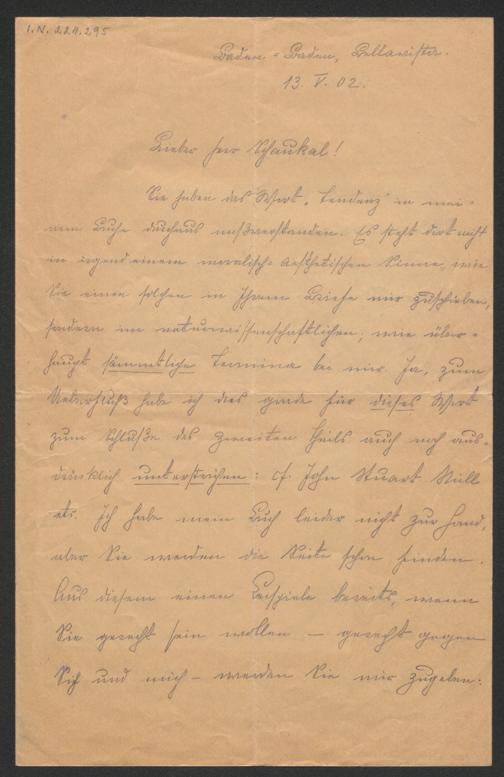 I.N. 224.295
Baden-Baden, Bellavista.
13. V. 02.
Lieber Herr Schaukal!
Sie haben das Wort „Tendenz" in mei-
nem Buche durchaus mißverstanden. Es steht dort nicht
in irgend einem moralisch-aesthetischen Sinne, wie
Sie einen solchen in Ihrem Briefe mir zuschieben,
sondern im naturwissenschaftlichen, wie über-
haupt sämmtliche Termina bei mir. Ja, zum
Ueberfluß habe ich dies grade für dieses Wort
zum Schluße des zweiten Theils auch noch aus-
drücklich unterstrichen: cf. John Stuart Mill
etc. Ich habe mein Buch leider nicht zur Hand,
aber Sie werden die Seite schon finden.
Aus diesem einen Beispiele bereits, wenn
Sie gerecht sein wollen — gerecht gegen
Sich und mich — werden Sie mir zugeben: